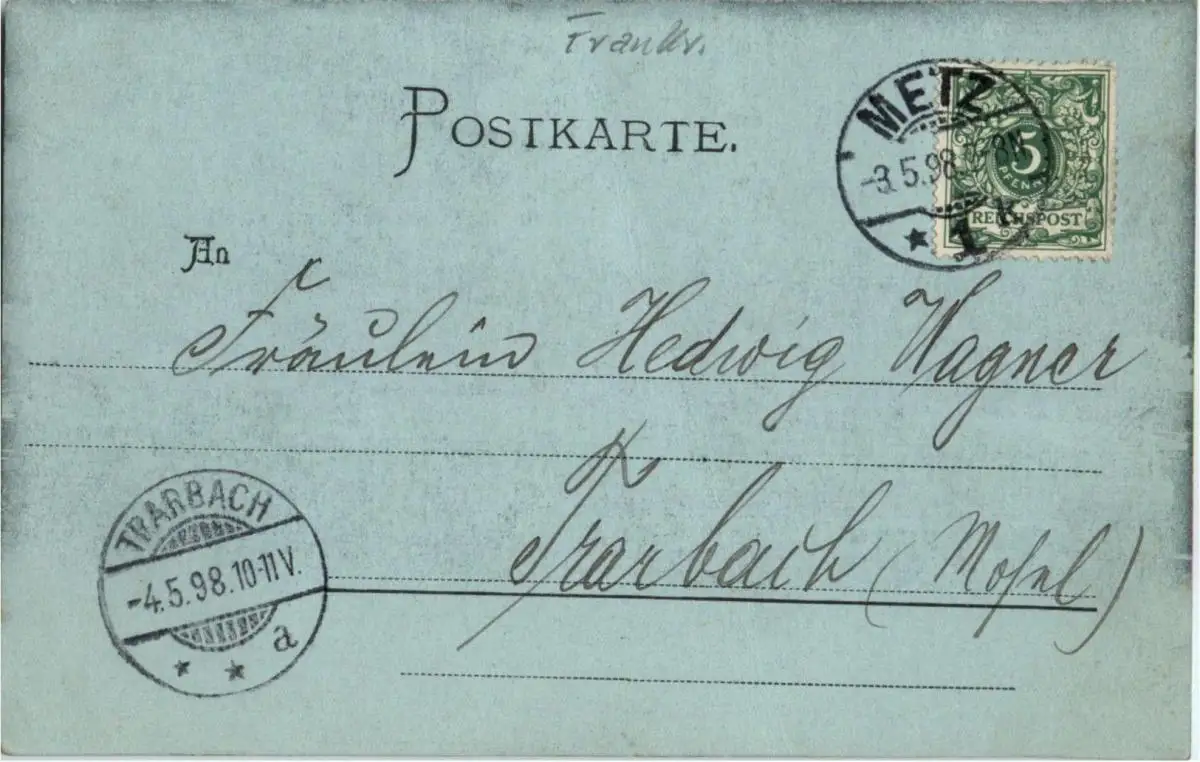 Frankr.
POSTKARTE.
METZ
-3.5.98. 7-8N
1 k
5
PFENNIG
REICHSPOST
An
Fräulein Hedwig Wagner
Trarbach (Mosel)
TRARBACH
-4.5.98.10-11V.
* * a